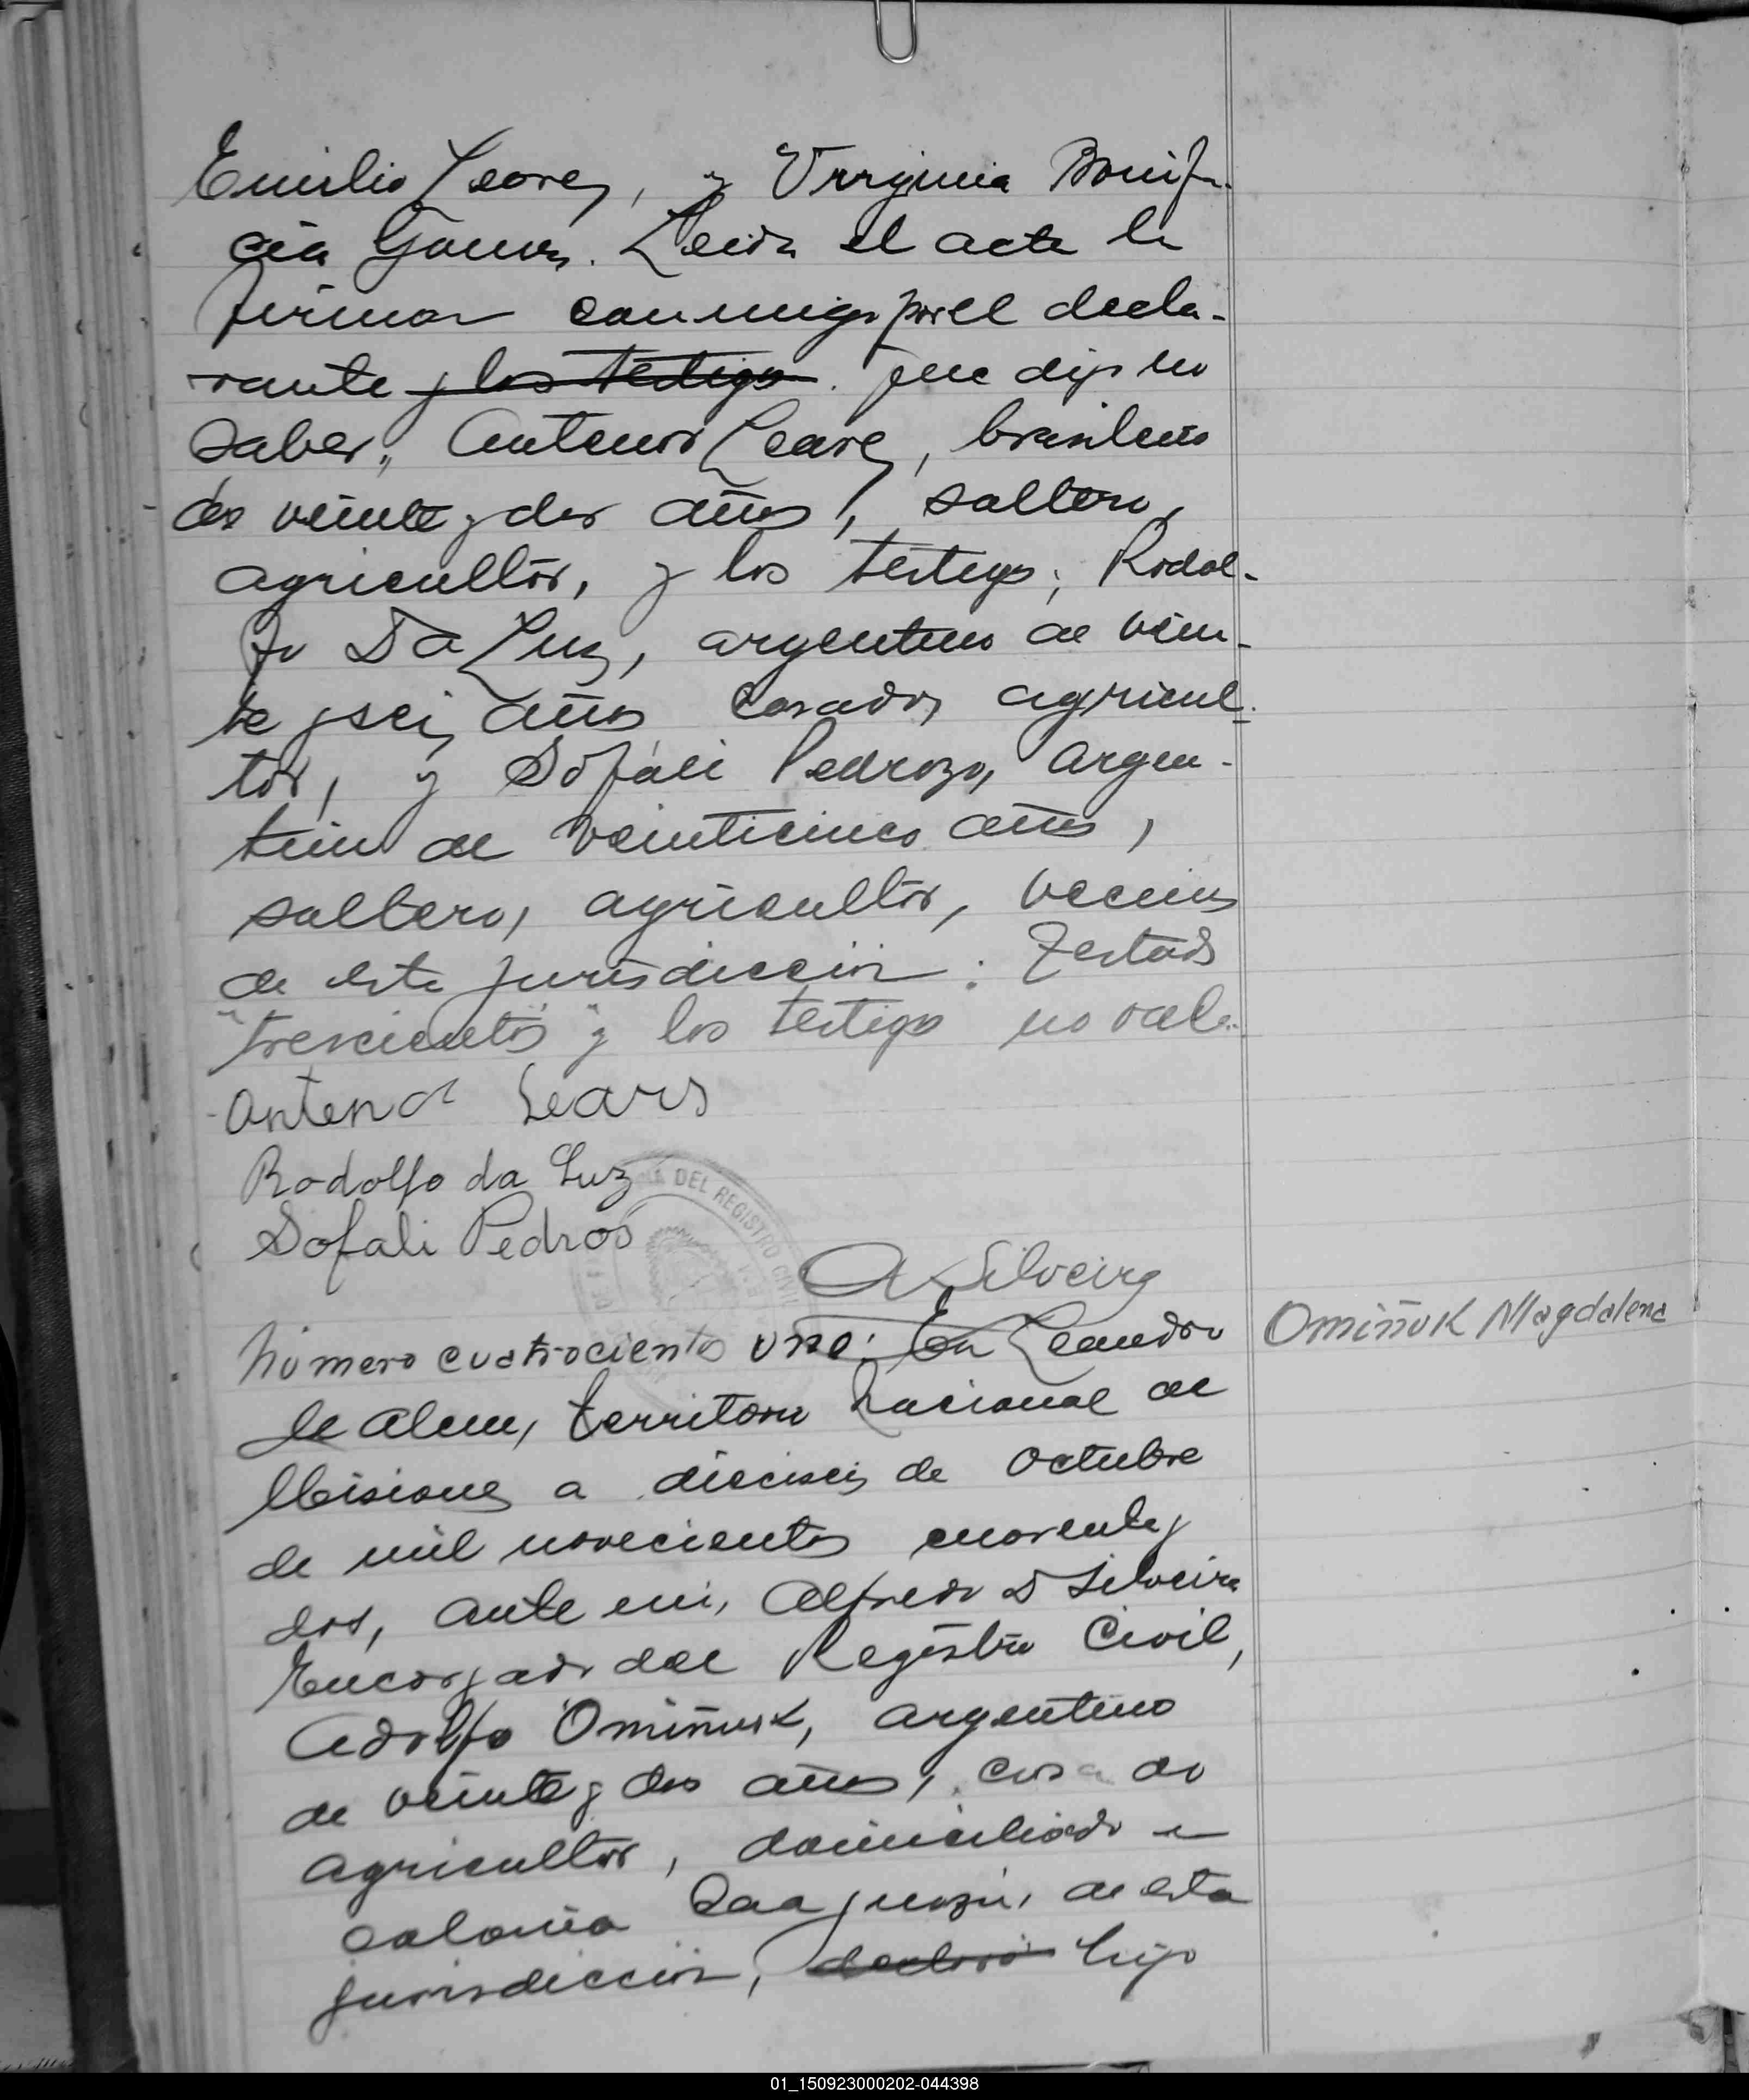 Emilio Leares, y Virginia Bonifa-
cia Gomes. Leida el acta la
firman conmigo por el decla-
rante y los testigos. que dijo no
saber, Antenor Leares, brasileño
de veinte y dos años, soltero,
agricultor, y los testigos; Rodol-
fo Da Luz, argentino de vein-
te y seis años casado, agricul-
tor, y Sofali Pedrozo, argen-
tino de veinticinco años,
soltero, agricultor, vecinos
de esta jurisdiccion: Testado
"trescientos" y los testigos no vale.
Antenor Lears
Rodolfo da Luz
Sofali Pedroso
DEL REGISTRO CIVIL
A Silveira
Número cuatrocientos uno: En Leandro
Ominuk Magdalena
N Alem, territorio Nacional de
Misiones a dieciseis de Octubre
de mil novecientos cuarenta y
dos, ante mi, Alfredo D Silveira
Encargado del Registro Civil,
Adolfo Ominuk, argentino
de veinte y dos años, casado
agricultor, domiciliado en
colonia de esta
jurisdiccion, declaró hijo